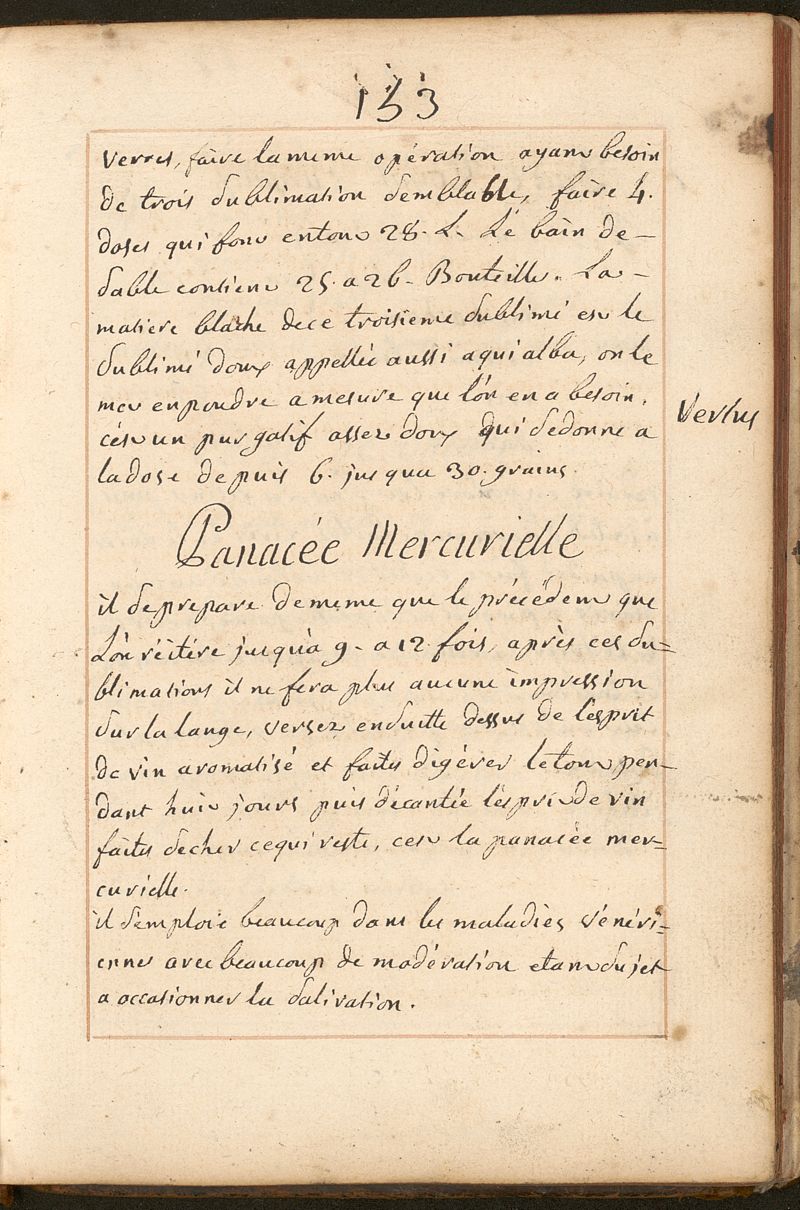 153
verres, faire la meme opération ayant besoin
de trois sublimation semblable, faire 4.
doses qui font entout 28. L. Le bain de-
sable contient 25. a 26. Bouteille. La-
matiere blache de ce troisieme sublimé est le
sublimé doux appellée aussi aqui alba, on le
met en poudre a mesure que l'on en a besoin.
cést un purgatif assez doux qui se donne a
la dose depuis 6. jusqua 30. grains.
Vertus
Panacée Mercurielle
il se prepare de meme que le précédent que
L'on réitére jusqu'a 9. a 12 fois, après ces su=
blimations il ne fera plus aucune impression
sur la lange, versez ensuitte dessus de l'esprit
de vin aromatisé et faites digérer le tout pen-
dant huit jours puis décantée l'esprit de vin
faites secher ce qui reste, cest la panacée mer=
curielle.
il s'emploie beaucoup dans les maladies véneri=
ennes avec beaucoup de modération etant sujet
a occasionner la salivation.